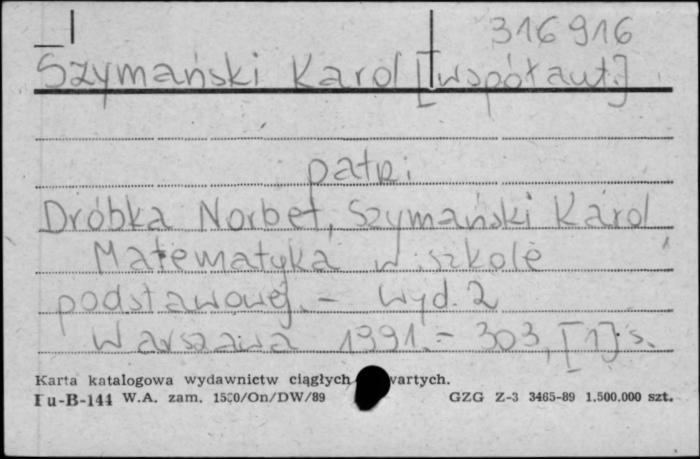 316916
Szymański Karol [współaut.]
patrz:
Dróbka Norbet, Szymański Karol
Matematyka w szkole
podstawowej. – Wyd. 2
Warszawa 1991. – 303, [1] s.
Karta katalogowa wydawnictw ciągłych wartych.
u-B-144 W.A. zam. /On/DW/89 GZG Z-3 3465-89 1.500.000 szt.